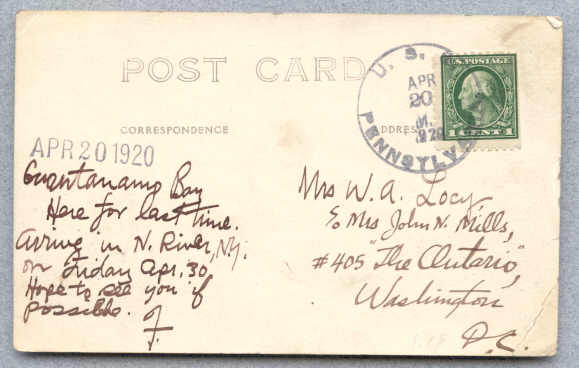 POST CARD
CORRESPONDENCE
ADDRESS
U. S.
APR
20
M.
1920
PENNSYLV
U.S. POSTAGE
1 CENT 1
APR 20 1920
Guantanamo Bay
Here for last time.
Arriving in N. River, N.Y.
on Friday Apr. 30,
Hope to see you if
possible. J.
Mrs W. A. Locy,
c/o Mrs John N. Mills,
#405 "The Ontario",
Washington
D.C.